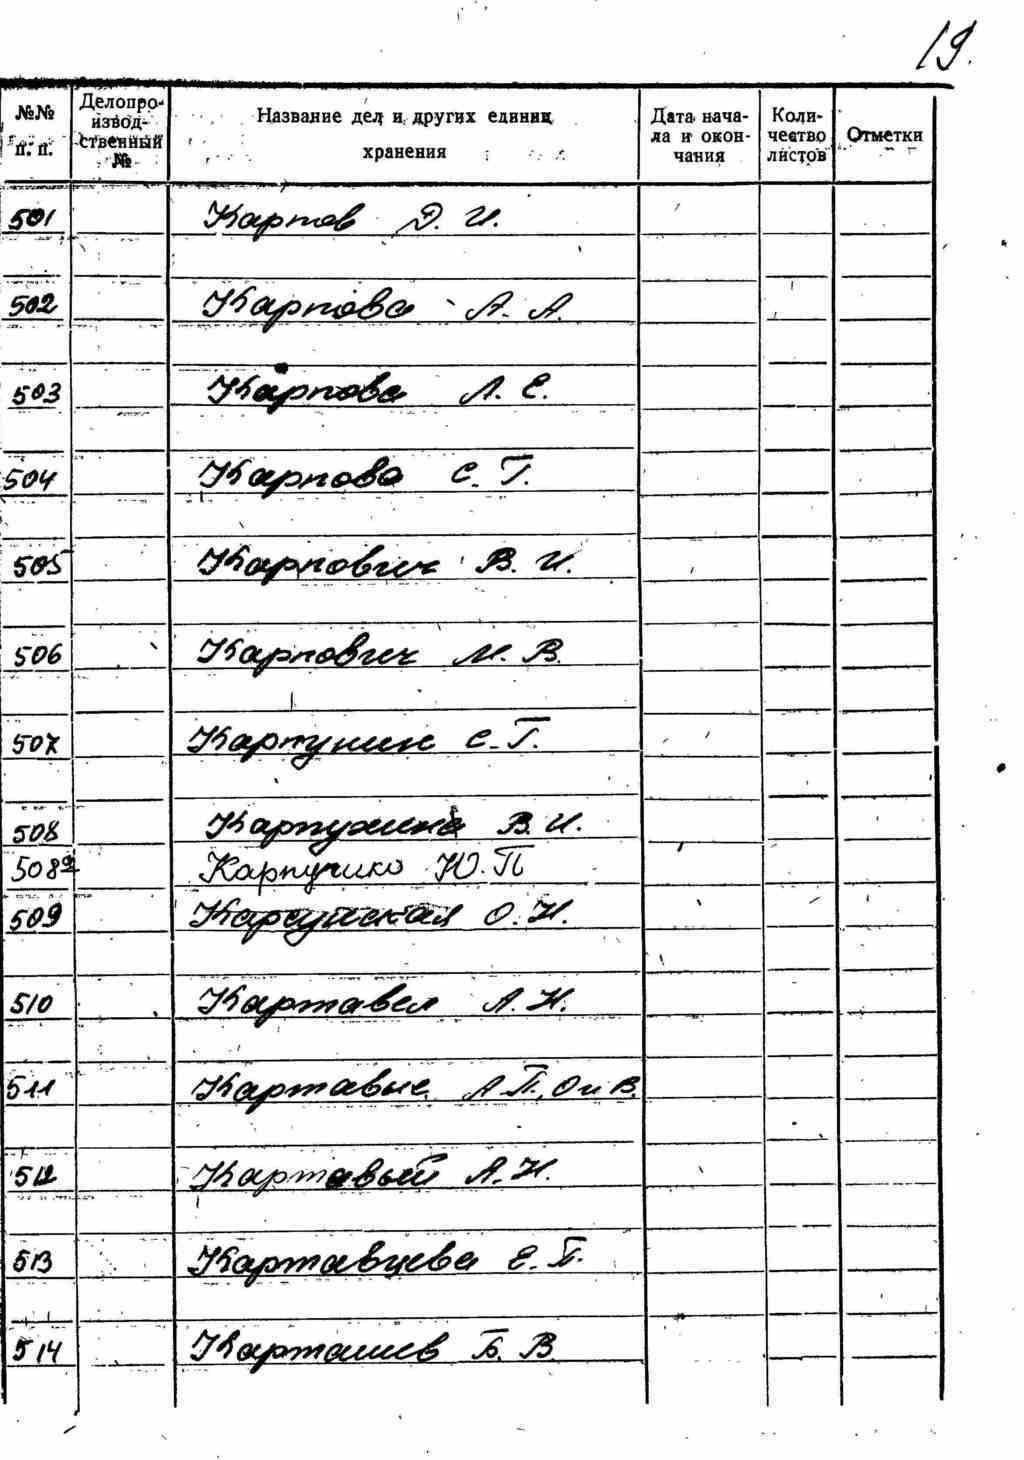 19.
№№ п. п.
Делопро-
извод-
ственный
№
Название дел и других единиц
хранения
Дата нача-
ла и окон-
чания
Коли-
чество
листов
Отметки
501 Карпов Д. И.
502 Карпова А. А.
503 Карпова Л. Е.
504 Карпова С. Г.
505 Карпович В. И.
506 Карпович М. В.
507 Карпунин С. Г.
508 Карпухина В. И.
508а Карпучико Ю. П
509 Карсунская О. Н.
510 Картавел А. Н.
511 Картавые А П., О и В.
512 Картавый А. Н.
513 Картавцева Е. П.
514 Карташев Б. В.